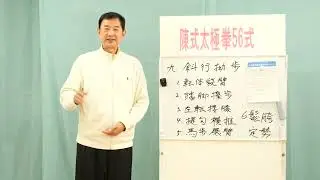 陳式太極拳56式
九 斜行拗步
1 転体旋臂
2 擦脚搂步
3 左転摟膝
4 提勾横推
5 馬步展臂
6 鬆胯
定勢